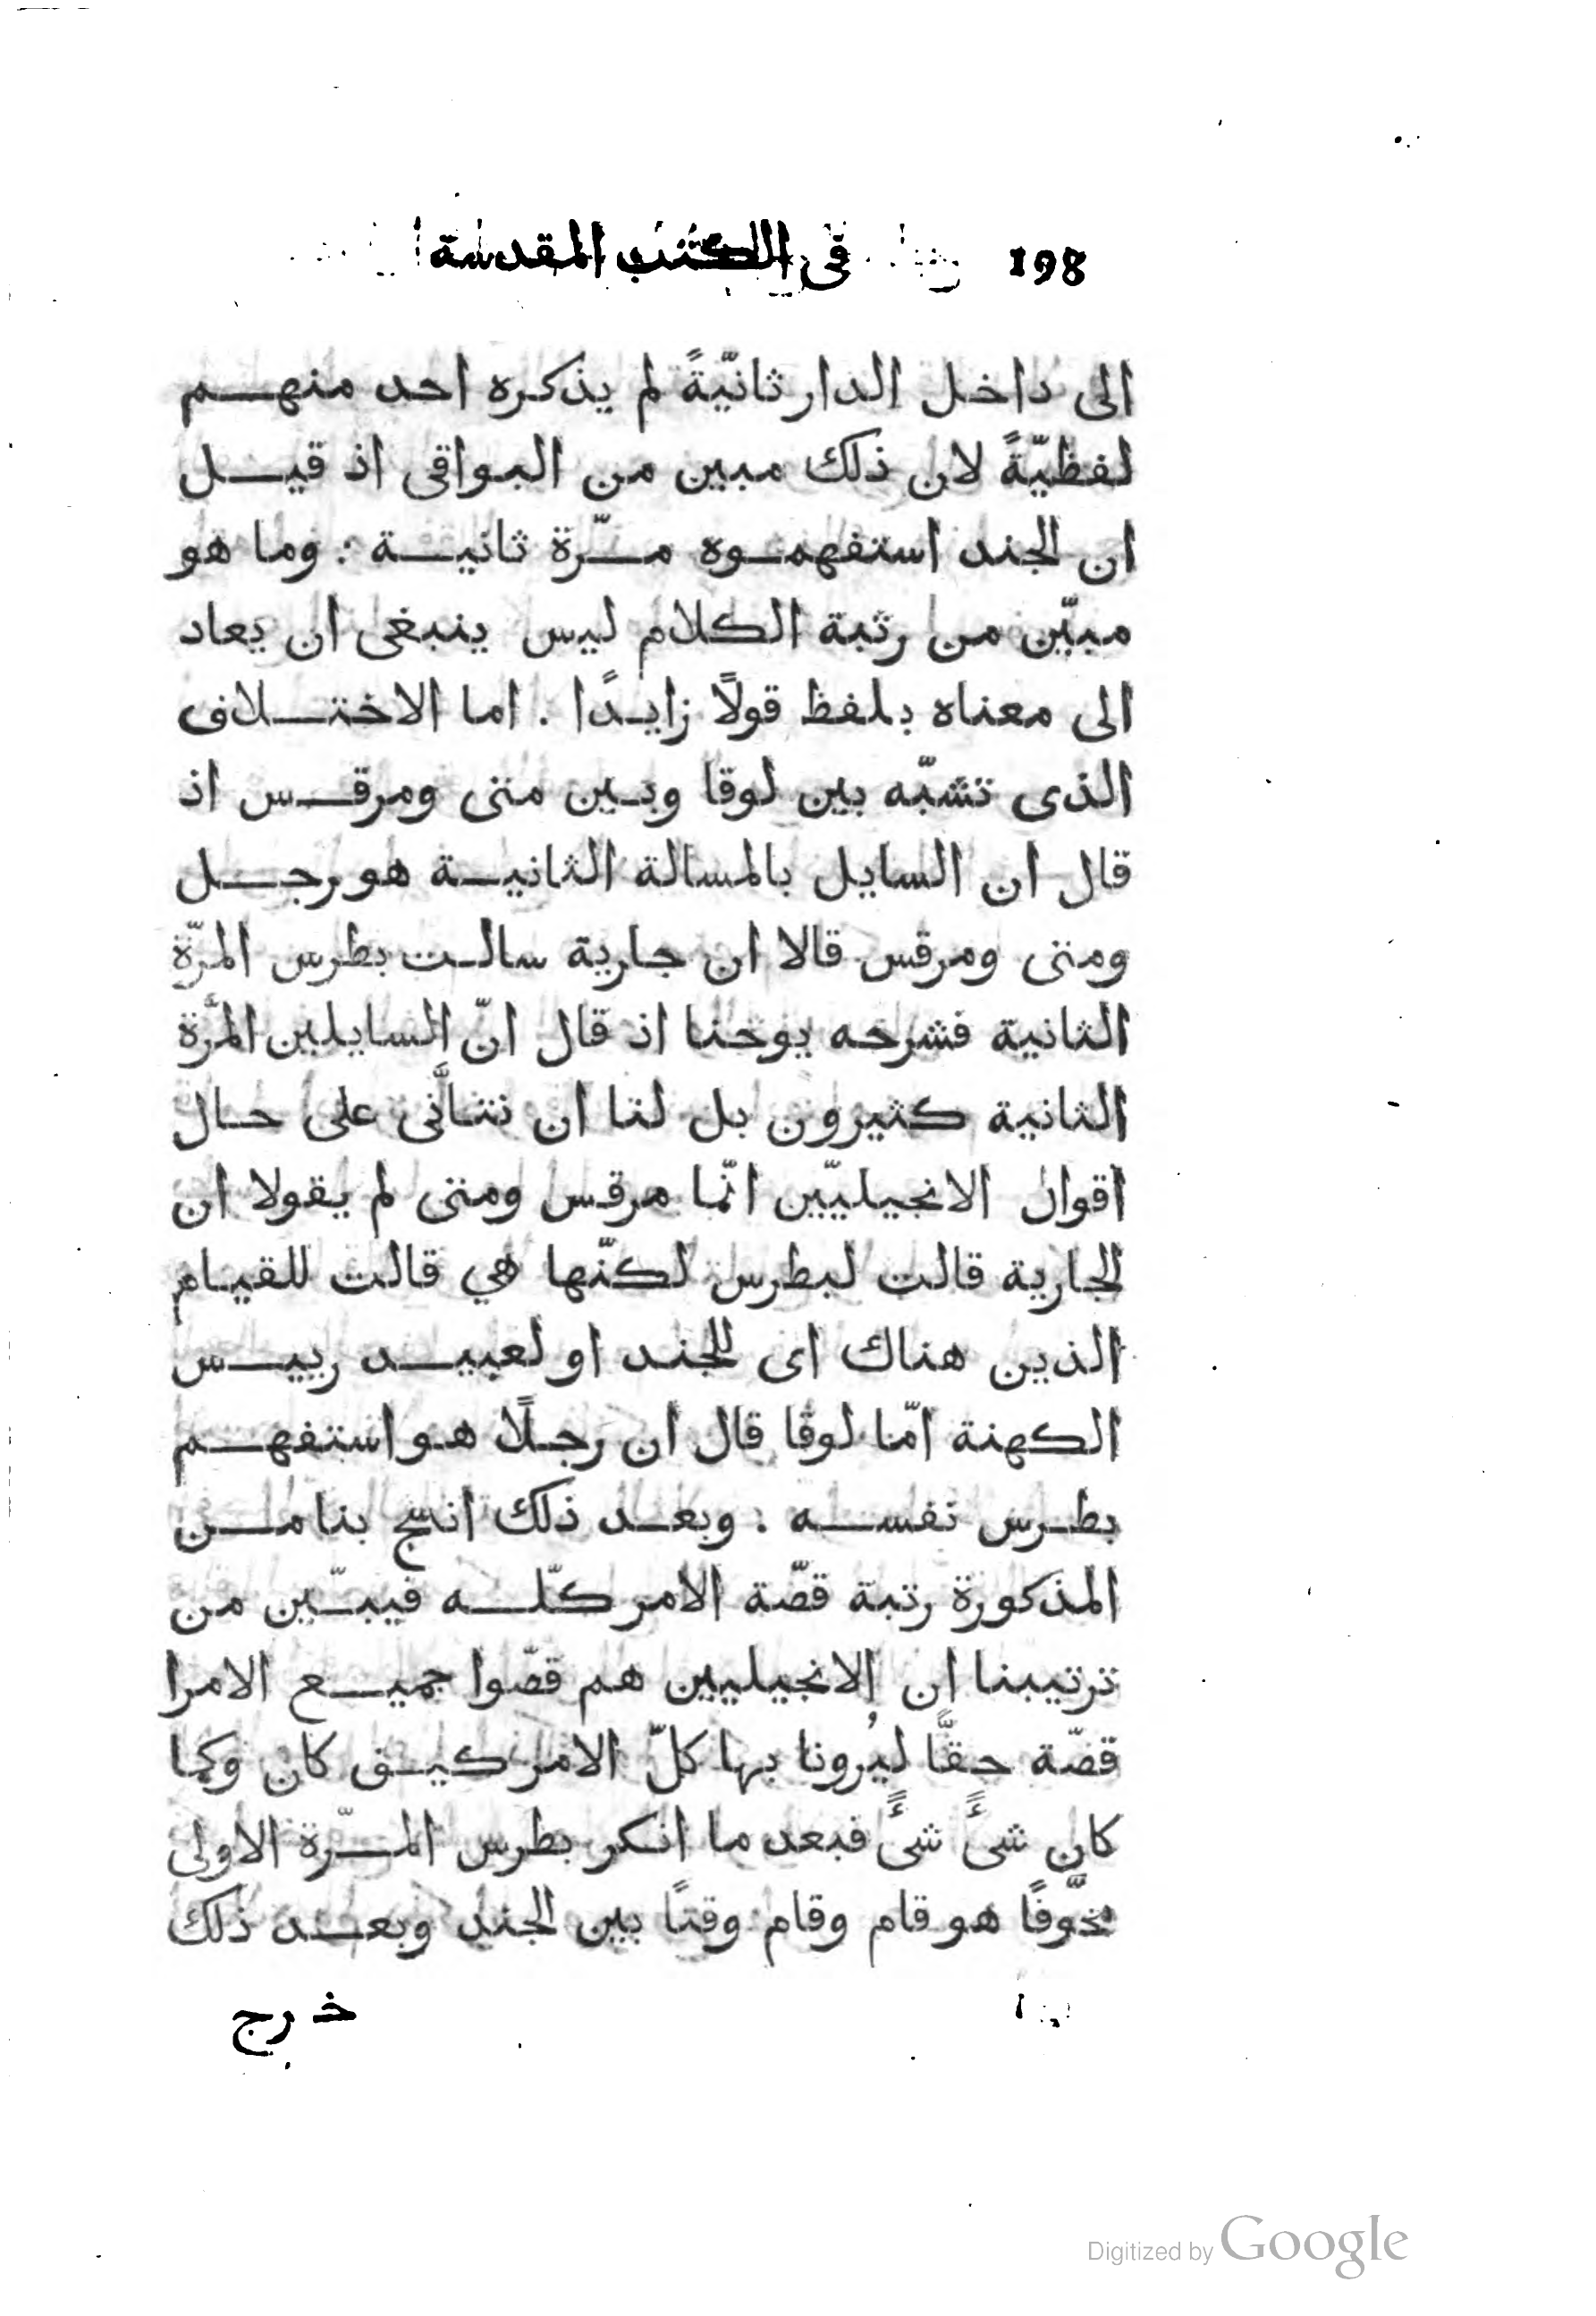 198 فى الكتب المقدسة
الى داخل الدار ثانيّةً لم يذكره احد منهم
لفظيّةً لان ذلك مبين من البواقى اذ قيل
ان الجند استفهموه مرّة ثانية : وما هو
مبيّن من رتبة الكلام ليس ينبغى ان يعاد
الى معناه بلفظ قولًا زايدًا . اما الاختلاف
الذى تشبّه بين لوقا وبين متى ومرقس اذ
قال ان السايل بالمسالة الثانية هو رجل
ومتى ومرقس قالا ان جارية سالت بطرس المرّة
الثانية فشرحه يوحنا اذ قال انّ السايلين المرّة
الثانية كثيرون بل لنا ان نتأنّى على حال
اقوال الانجيليّين انّما مرقس ومتى لم يقولا ان
الجارية قالت لبطرس لكنّها هي قالت للقيام
الذين هناك اى للجند او لعبيد رييس
الكهنة امّا لوقا قال ان رجلًا هو استفهم
بطرس نفسه . وبعد ذلك انتج بنا من
المذكورة رتبة قصّة الامر كلّه فيبيّن من
ترتيبنا ان الانجيليين هم قصّوا جميع الامرا
قصّة حقًّا ليُرونا بها كلّ الامر كيف كان وكما
كان شىءً شىءً فبعد ما انكر بطرس المرّة الاولى
تخوّفًا هو قام وقام وقتًا بين الجند وبعد ذلك
خرج
Digitized by Google